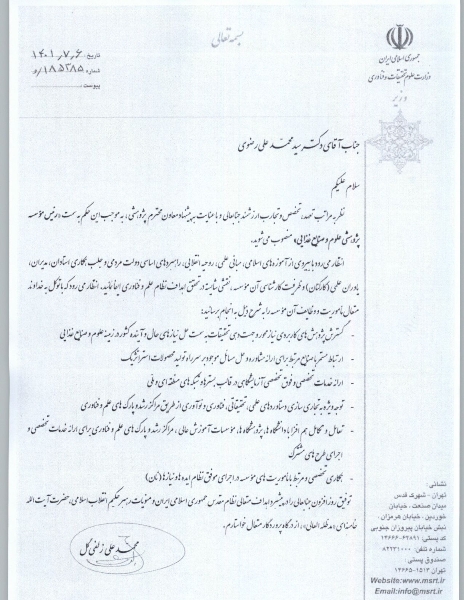 بسمه تعالی
جمهوری اسلامی ایران
وزارت علوم، تحقیقات و فناوری
وزیر
تاریخ: ۱۴۰۱,۷,۶
شماره ۱۸۵۲۸۵/و
پیوست
جناب آقای دکتر سید محمد علی رضوی
سلام علیکم
نظر به مراتب تعهد، تخصص و تجارب ارزشمند جنابعالی و با عنایت به پیشنهاد معاون محترم پژوهشی، به موجب این حکم به سمت «رئیس مؤسسه
پژوهشی علوم و صنایع غذایی» منصوب می‌شوید.
انتظار می‌رود با بهره‌گیری از آموزه‌های اسلامی، مبانی علمی، روحیه انقلابی، راهبردهای اساسی دولت مردمی و جلب همکاری استادان، مدیران،
یاوران علمی (کارکنان) و ظرفیت کارشناسی آن مؤسسه، نقشی شایسته در تحقق اهداف نظام علم و فناوری ایفا نمائید. انتظار می‌رود که با توکل به خداوند
متعال مأموریت و وظایف آن مؤسسه را به شرح ذیل به انجام برسانید:
- گسترش پژوهش‌های کاربردی نیاز محور و جهت‌دهی تحقیقات به سمت حل نیازهای حال و آینده کشور در زمینه علوم و صنایع غذایی
- ارتباط مستمر با صنایع مرتبط برای ارائه مشاوره و حل مسائل موجود بر سر راه تولید محصولات استراتژیک
- ارائه خدمات تخصصی و فوق تخصصی آزمایشگاهی در قالب بسترها و شبکه‌های منطقه‌ای و ملی
- توجه ویژه به تجاری سازی دستاوردهای علمی، تحقیقاتی، فناوری و نوآوری از طریق مراکز رشد و پارک‌های علم و فناوری
- تعامل و تکامل هم افزا با دانشگاه‌ها، پژوهشگاه‌ها، مؤسسات آموزش عالی، مراکز رشد و پارک‌های علم و فناوری برای ارائه خدمات تخصصی و
اجرای طرح‌های مشترک
- همکاری تخصصی و مرتبط با مأموریت‌های مؤسسه در اجرای موفق نظام ایده‌ها و نیازها (نان)
توفیق روزافزون جنابعالی را در پیشبرد اهداف متعالی نظام مقدس جمهوری اسلامی ایران و منویات رهبر حکیم انقلاب اسلامی، حضرت آیت الله
خامنه‌ای (مدظله العالی)، از درگاه پروردگار متعال خواستارم.
محمد علی زلفی گل
نشانی:
تهران - شهرک قدس
میدان صنعت، خیابان
خوردین، خیابان هرمزان،
نبش خیابان پیروزان جنوبی
کد پستی: ۶۴۸۹۱-۱۴۶۶۶
شماره تلفن: ۸۲۲۳۱۰۰۰
صندوق پستی:
تهران ۱۵۱۳-۱۴۶۶۵
Website:www.msrt.ir
Email:info@msrt.ir